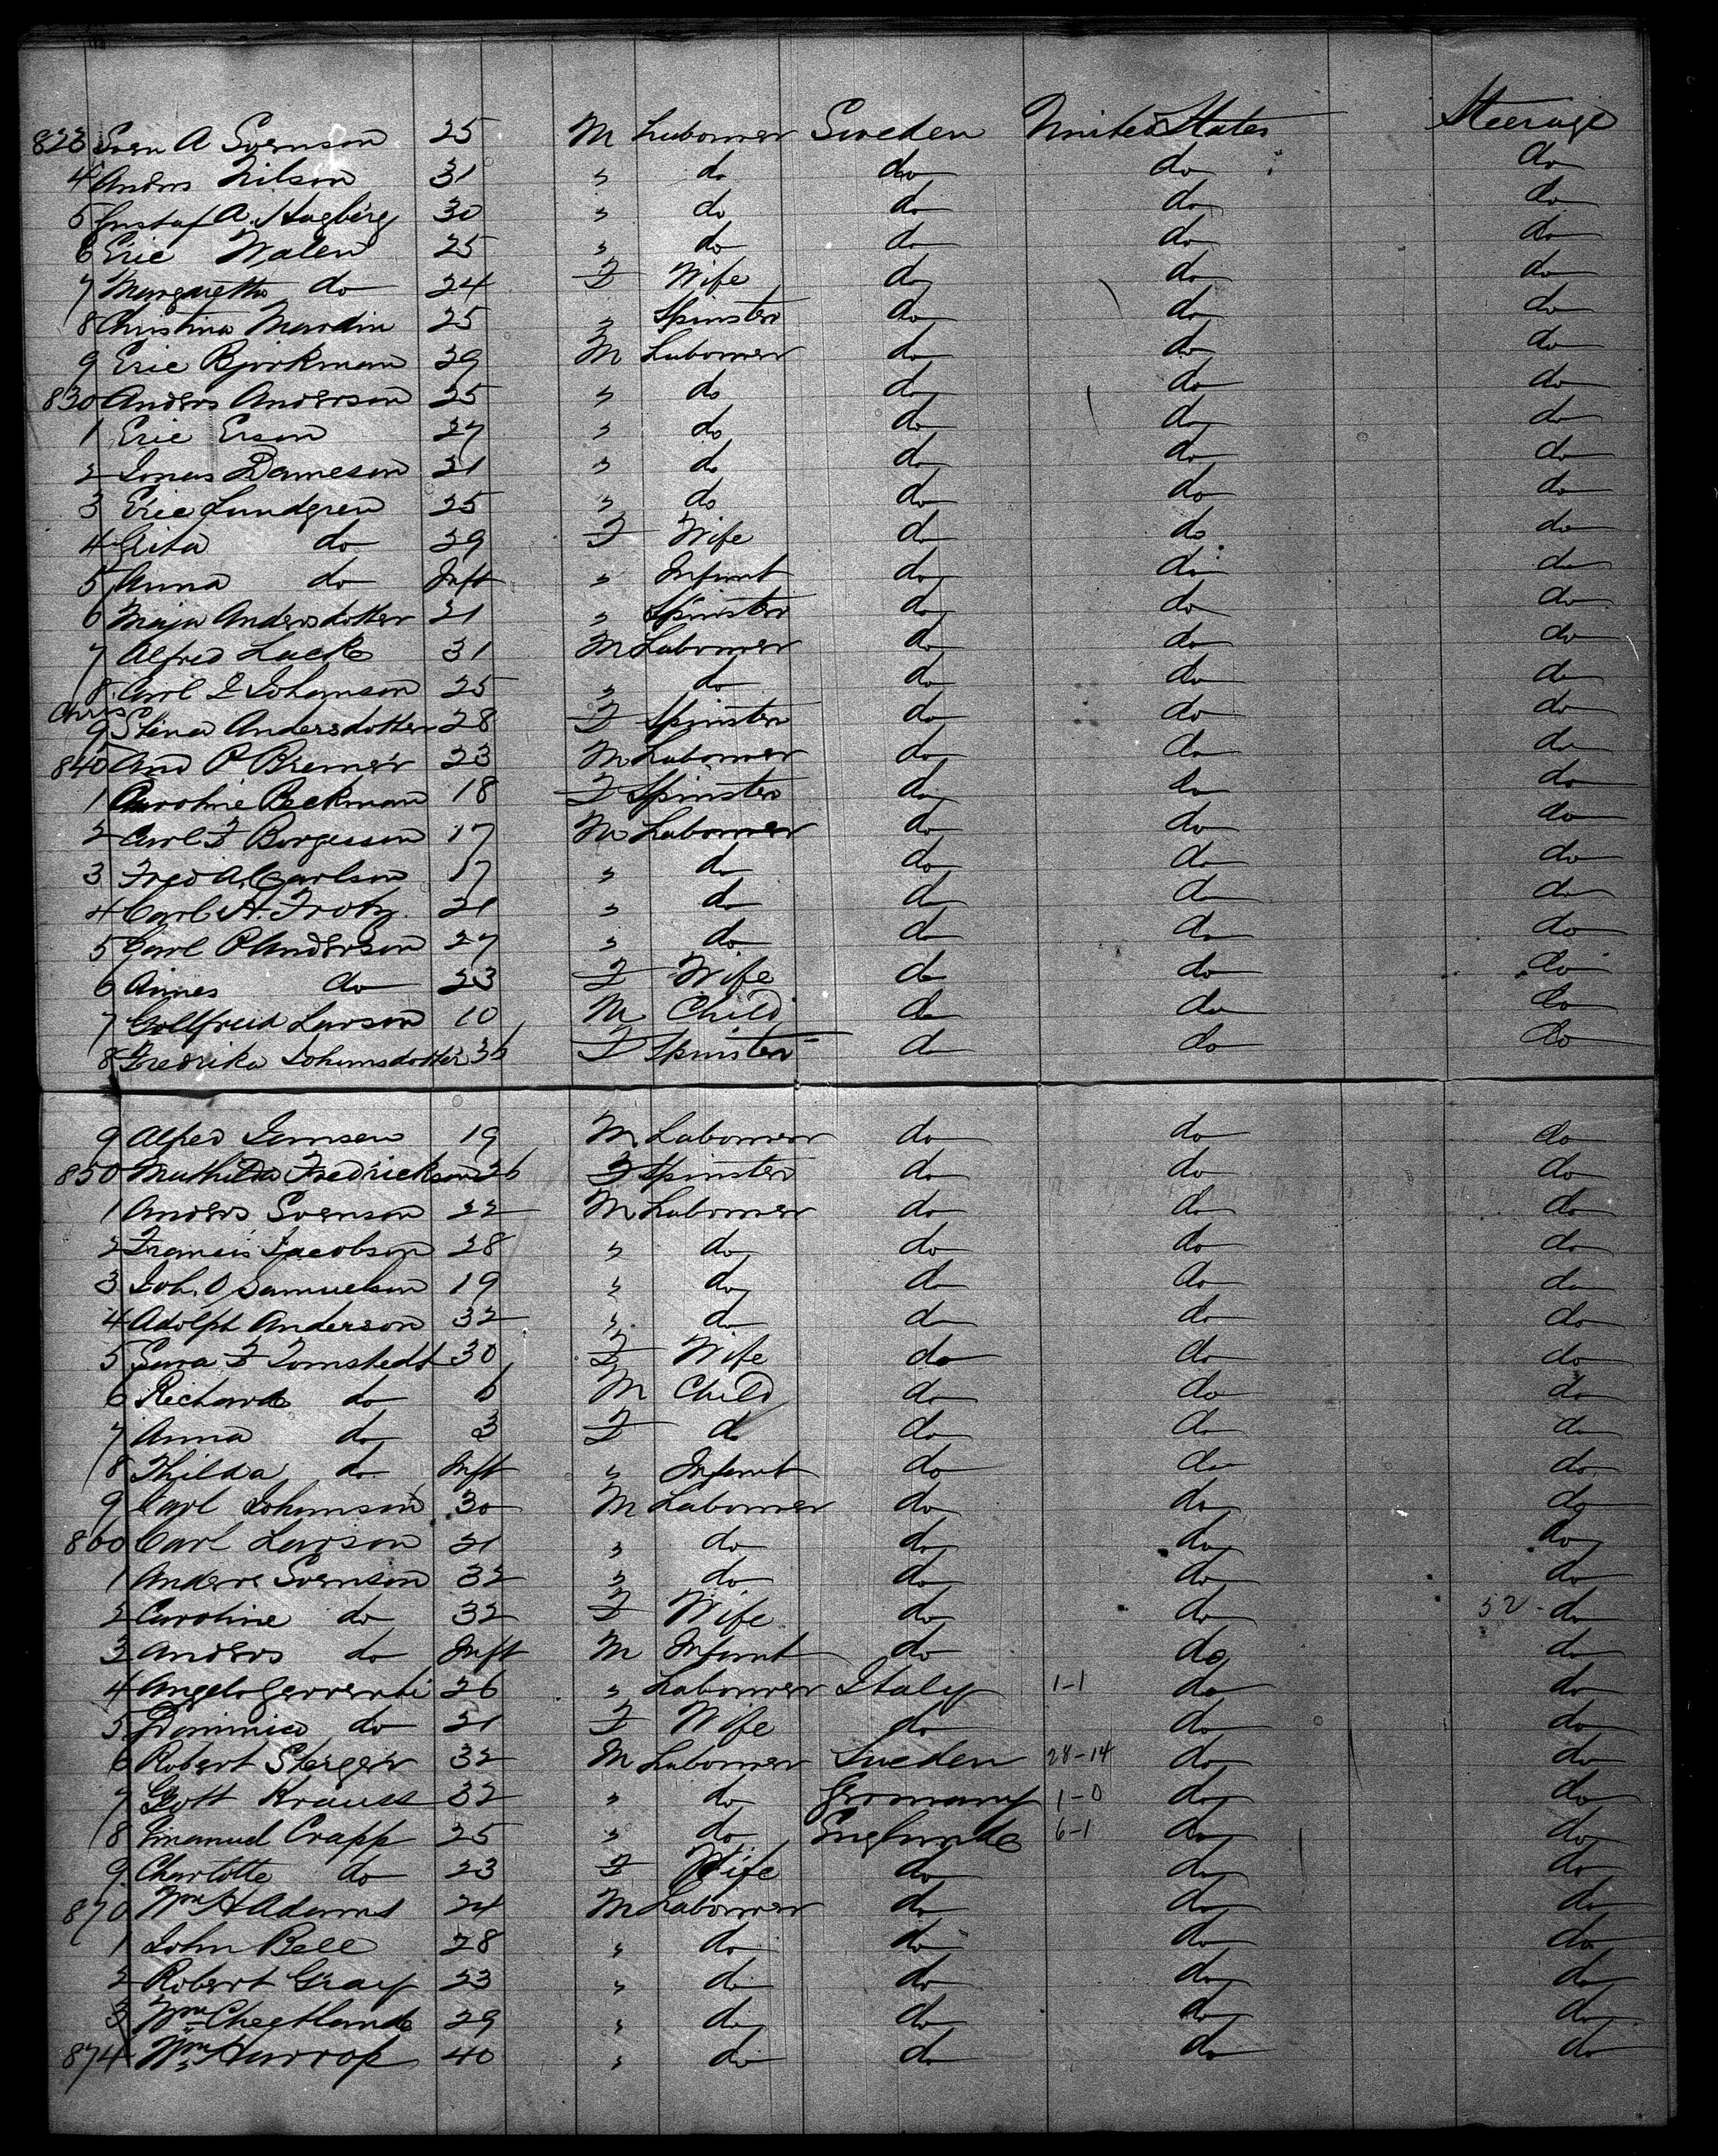 823 Sven A Svenson 25 M Labourer Sweden United States Steerage
4 Anders Nilson 31 " do do do do
5 Gustaf A. Hagberg 30 " do do do do
6 Eric Walen 25 " do do do do
7 Margaretta do 24 F Wife do do do
8 Christina Nordin 25 " Spinster do do do
9 Eric Bjorkman 29 M Labourer do do do
830 Anders Anderson 25 " do do do do
1 Eric Erson 27 " do do do do
2 Jonas Danieson 21 " do do do do
3 Eric Lundgren 25 " do do do do
4 Grita do 29 F Wife do do do
5 Anna do Inft " Infant do do do
6 Maja Andersdotter 21 " Spinster do do do
7 Alfred Lack 31 M Labourer do do do
8 Carl F Johanson 25 " do do do do
Chris
9 Stena Andersdotter 28 F Spinster do do do
840 And P Bremer 23 M Labourer do do do
1 Caroline Beckman 18 F Spinster do do do
2 Carl F Borgesson 17 M Labourer do do do
3 Fred A. Carlson 17 " do do do do
4 Carl A. 21 " do do do do
5 Carl P Anderson 27 " do do do do
6 do 23 F Wife do do do
7 Gottfried Larson 10 M Child do do do
8 Fredrika Johansdotter 36 F Spinster do do do
9 Alfred Jansen 19 M Labourer do do do
850 Mathilda Fredrickson 26 F Spinster do do do
1 Anders Svenson 22 M Labourer do do do
2 Francis Jacobson 28 " do do do do
3 Joh. O Samuelson 19 " do do do do
4 Adolph Anderson 32 " do do do do
5 Sara F Tornstedt 30 F Wife do do do
6 Richard do 6 M Child do do do
7 Anna do 3 F do do do do
8 Thilda do Inft " Infant do do do
9 Carl Johanson 30 M Labourer do do do
860 Carl Larson 21 " do do do do
1 Anders Svenson 32 " do do do do
2 Caroline do 32 F Wife do do 52 - do
3 Anders do Inft M Infant do do do
4 Angelo 26 " Labourer Italy 1-1 do do
5 Dominica do 21 F Wife do do do
6 Robert Sterger 32 M Labourer Sweden 28-14 do do
7 Gott Krauss 32 " do Germany 1-0 do do
8 Emanuel Crapp 25 " do England 6-1 do do
9 Charlotte do 23 F Wife do do do
870 Wm H Adams 24 M Labourer do do do
1 John Bell 28 " do do do do
2 Robert Gray 23 " do do do do
3 Wm Cheetland 29 " do do do do
874 Wm Harrop 40 " do do do do